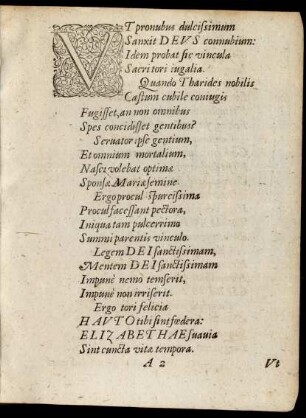 VT pronubus dulcissimum
Sanxit DEVS connubium:
Idem probat sic vincula
Sacri tori iugalia.
Quando Tharides nobilis
Castum cubile coniugis
Fugisset, an non omnibus
Spes concidisset gentibus?
Seruator ipse gentium,
Et omnium mortalium,
Nasci volebat optimæ
Sponsæ Mariæ semine.
Ergo procul spurcissima
Procul facessant pectora,
Iniqua tam pulcerrimo
Summi parentis vinculo.
Legem DEI sanctissimam,
Mentem DEI sanctissimam
Impunè nemò temserit,
Impunè non irriserit.
Ergo tori felicia
HAVTO tibi sint fœdera:
ELIZABETHAE suavia
Sint cuncta vitæ tempora.
A 2 Vt